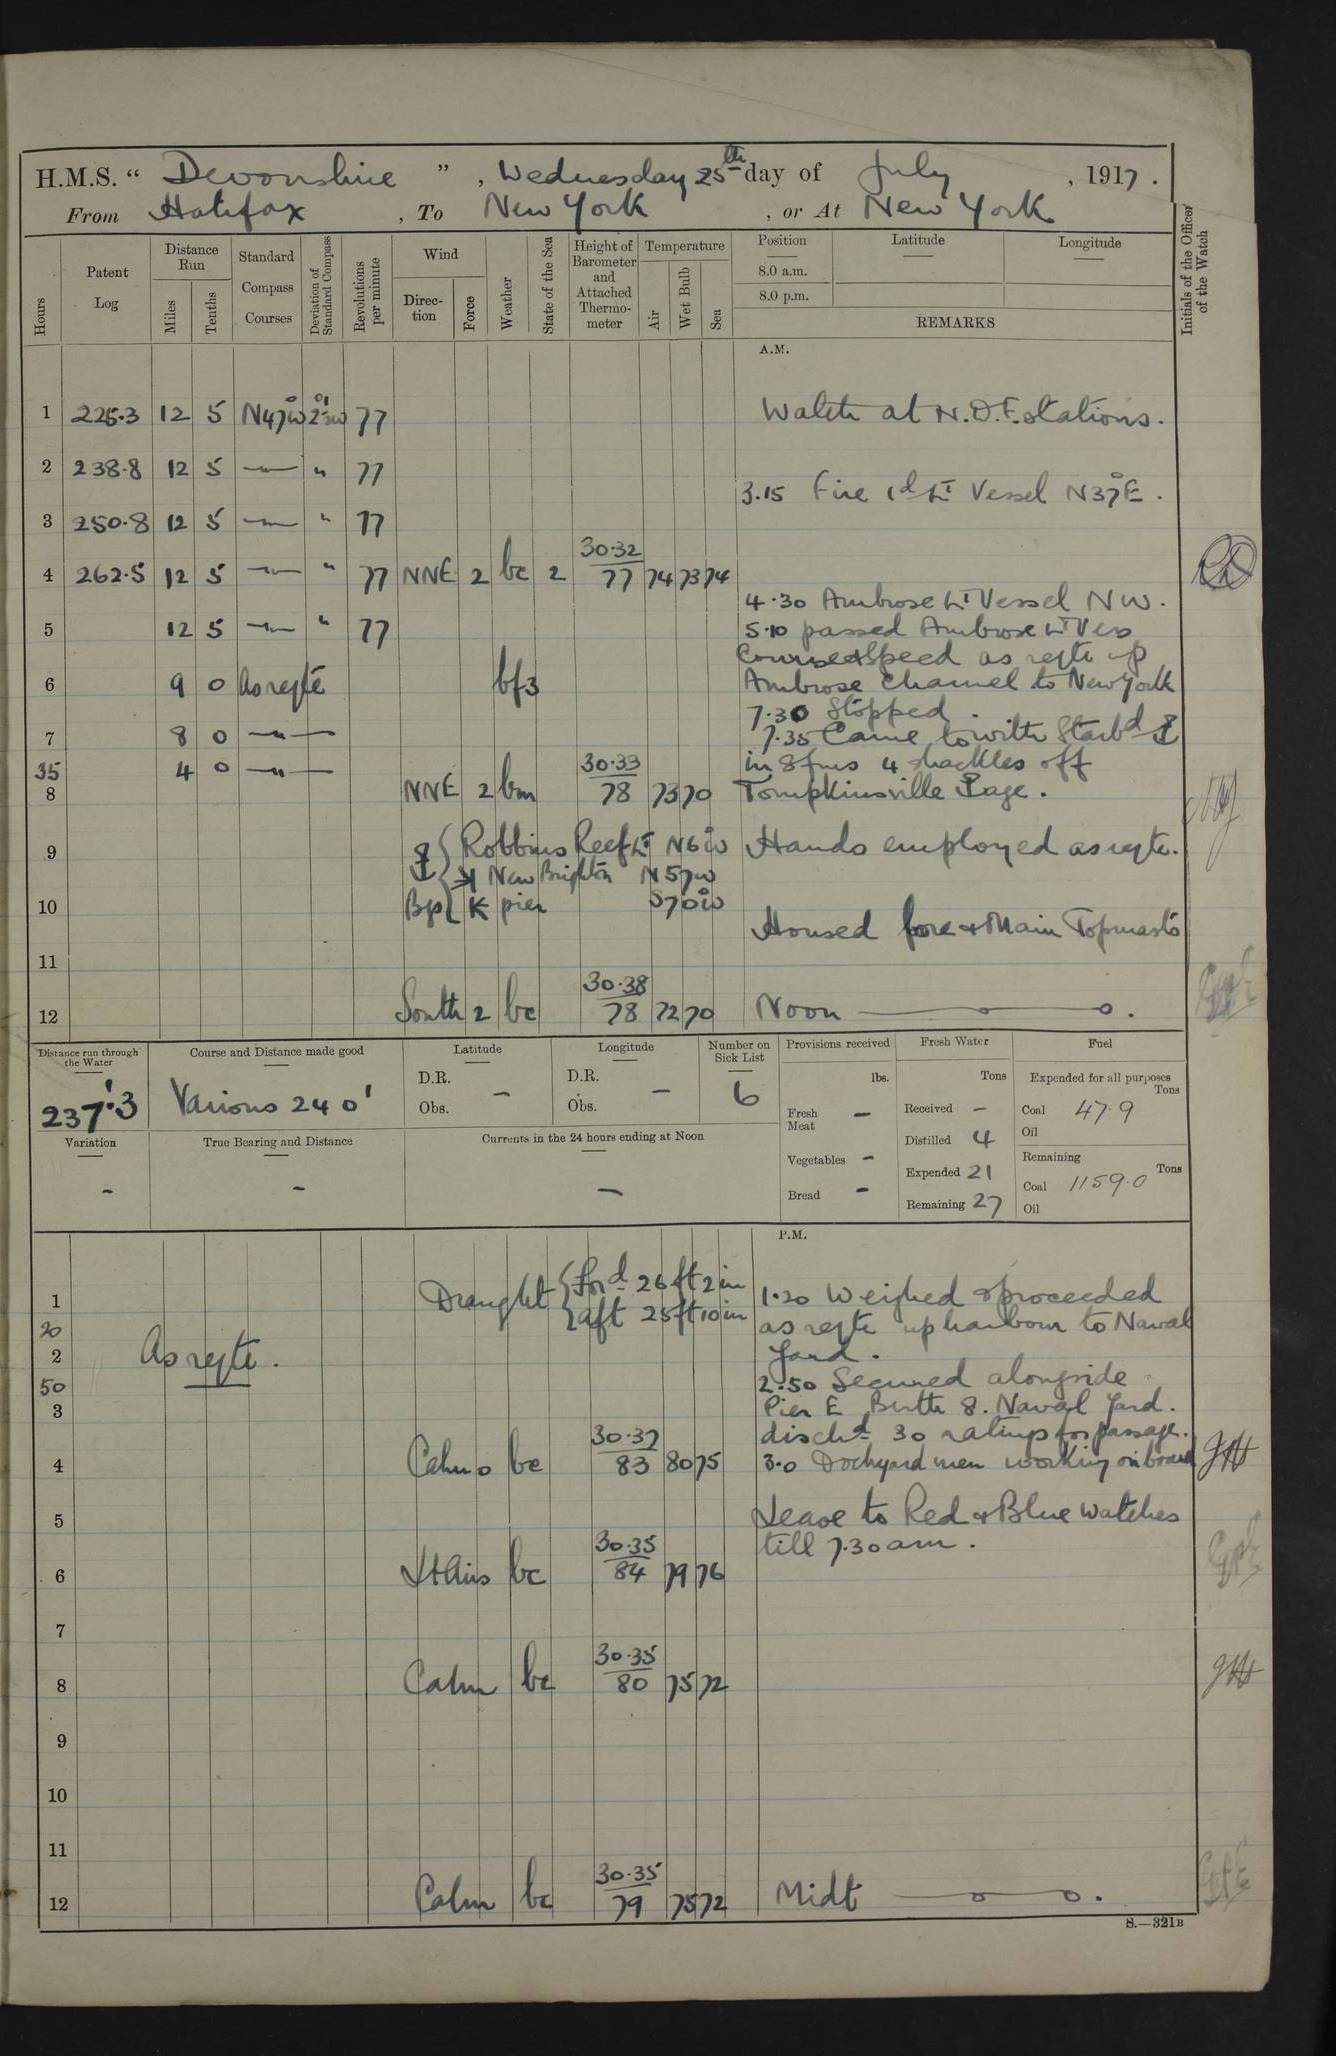 H.M.S. “ Devonshire ” , Wednesday 25th day of July , 1917 .
From Halifax , To New York , or At New York
Hours
Patent Log
Distance Run
Miles
Tenths
Standard Compass Courses
Deviation of Standard Compass
Revolutions per minute
Wind
Direction
Force
Weather
State of the Sea
Height of Barometer and Attached Thermometer
Temperature
Air
Wet Bulb
Sea
Position
Latitude
Longitude
8.0 a.m.
8.0 p.m.
REMARKS
Initials of the Officer of the Watch
A.M.
1 225.3 12 5 N47°W 2½°W 77 Watch at N.D.F. stations.
2 238.8 12 5 —"— " 77
3.15 Fire Id Lt Vessel N37°E .
3 250.8 12 5 —"— " 77
4 262.5 12 5 —"— " 77 NNE 2 bc 2 30.32 77 74 73 74
4.30 Ambrose Lt Vessel NW.
5 12 5 —"— " 77 5.10 passed Ambrose Lt Vess
Course & Speed as reqte up
6 9 0 As reqte bf3 Ambrose channel to New York
7.30 Stopped .
7 8 0 —"— 7.35 Came to with Starbd ⚓
35 4 0 —"— in 8 fms 4 shackles off
8 NNE 2 bm 30.33 78 73 70 Tompkinsville ⚓age .
9 ⚓ Bgs { Robbins Reef Lt N6°W Hands employed as reqte.
New Brighton N57W
10 pier S70°W
Housed fore & Main Topmasts
11
12 South 2 bc 30.38 78 72 70 Noon .
Distance run through the Water
237'.3
Course and Distance made good
Various 240'
Latitude
D.R.
Obs. –
Longitude
D.R.
Obs. –
Number on Sick List
6
Provisions received
lbs.
Fresh Meat –
Vegetables –
Bread –
Fresh Water
Tons
Received –
Distilled 4
Expended 21
Remaining 27
Fuel
Expended for all purposes
Tons
Coal 47.9
Oil
Remaining
Tons
Coal 1159.0
Oil
Variation
–
True Bearing and Distance
–
Currents in the 24 hours ending at Noon
–
P.M.
Draught { Ford 26 ft 2 in
aft 25 ft 10 in
1 1.20 Weighed & proceeded
20 as reqte up harbour to Naval
2 As reqte. Yard .
50 2.50 Secured alongside
3 Pier E Berth 8. Naval Yard.
dischd 30 ratings for passage.
4 Calm 0 bc 30.37 83 80 75 3.0 Dockyard men working on board
5 Leave to Red & Blue Watches
till 7.30 am .
6 Lt Airs bc 30.35 84 79 76
7
8 Calm bc 30.35 80 75 72
9
10
11
12 Calm bc 30.35 79 75 72 Midt .
S.—321B